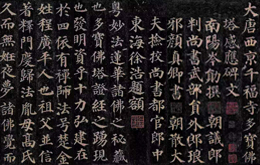 大唐西京千福寺多寶佛
塔感應碑文
南陽岑勛撰 朝議郎
判尚書武部員外郎琅
邪顏真卿書 朝散大
夫撿挍尚書都官郎中
東海徐浩題額
粵妙法蓮華諸佛之秘藏
也多寶佛塔證經之踴現
也發明資乎十力弘建在
於四依有禪師法號楚金
姓程廣平人也祖父並信
著釋門慶歸法胤母高氏
久而無妊夜夢諸佛覺而